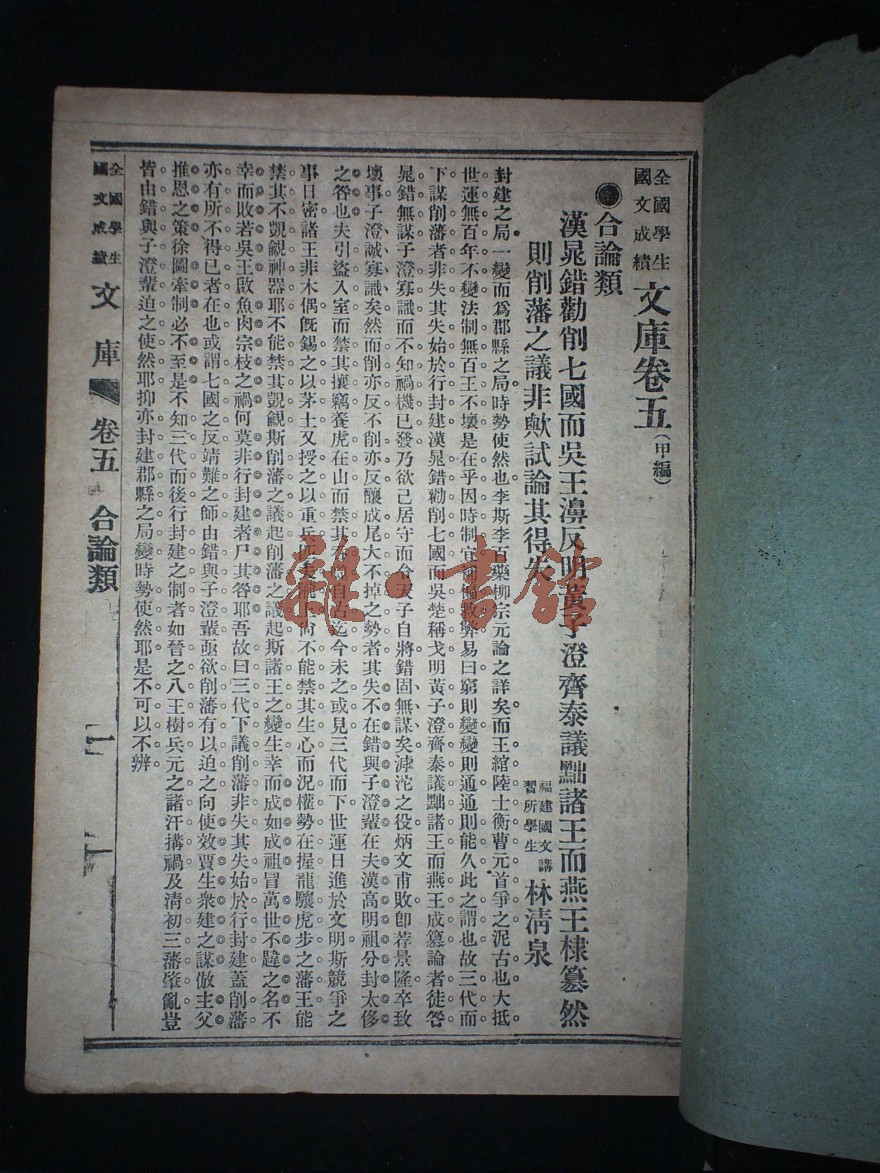 全國學生國文成績文庫卷五(甲編)
●合論類
漢晁錯勸削七國而吳王濞反明黃子澄齊泰議黜諸王而燕王棣篡然
則削藩之議非歟試論其得失
福建國文講習所學生 林淸泉
封建之局一變而爲郡縣之局時勢使然也李斯李百藥柳宗元論之詳矣而王綰陸士衡曹元首爭之泥古也大抵
世運無百年不變法制無百王不壞是在乎因時制宜 弊易曰窮則變變則通通則能久此之謂也故三代而
下謀削藩者非失其失始於行封建漢晁錯勸削七國而吳楚稱戈明黃子澄齊泰議黜諸王而燕王成篡論者徒咎
晁錯無謀子澄寡識而不知禍機已發乃欲己居守而令天子自將錯固無謀矣滹沱之役炳文甫敗卽荐景隆卒致
壞事子澄誠寡識矣然而削亦反不削亦反釀成尾大不掉之勢者其失不在錯與子澄輩在夫漢高明祖分封太侈
之咎也夫引盜入室而禁其攘竊養虎在山而禁其 自古迄今未之或見三代而下世運日進於文明斯競爭之
事日密諸王非木偶旣錫之以茅土又授之以重兵 尙不能禁其生心而況權勢在握龍驤虎步之藩王能
禁其不覬覦神器耶不能禁其覬覦斯削藩之議起削藩之議起斯諸王之變生幸而成如成祖冒萬世不韙之名不
幸而敗若吳王啟魚肉宗枝之禍何莫非行封建者尸其咎耶吾故曰三代下議削藩非失其失始於行封建蓋削藩
亦有所不得已者在也或謂七國之反靖難之師由錯與子澄輩亟欲削藩有以迫之向使效賈生衆建之謀倣主父
推恩之策徐圖牽制必不至是不知三代而後行封建之制者如晉之八王樹兵元之諸汗搆禍及清初三藩肇亂豈
皆由錯與子澄輩迫之使然耶抑亦封建郡縣之局變時勢使然耶是不可以不辨
全國學生國文成績文庫 卷五 合論類 一
雜·書館